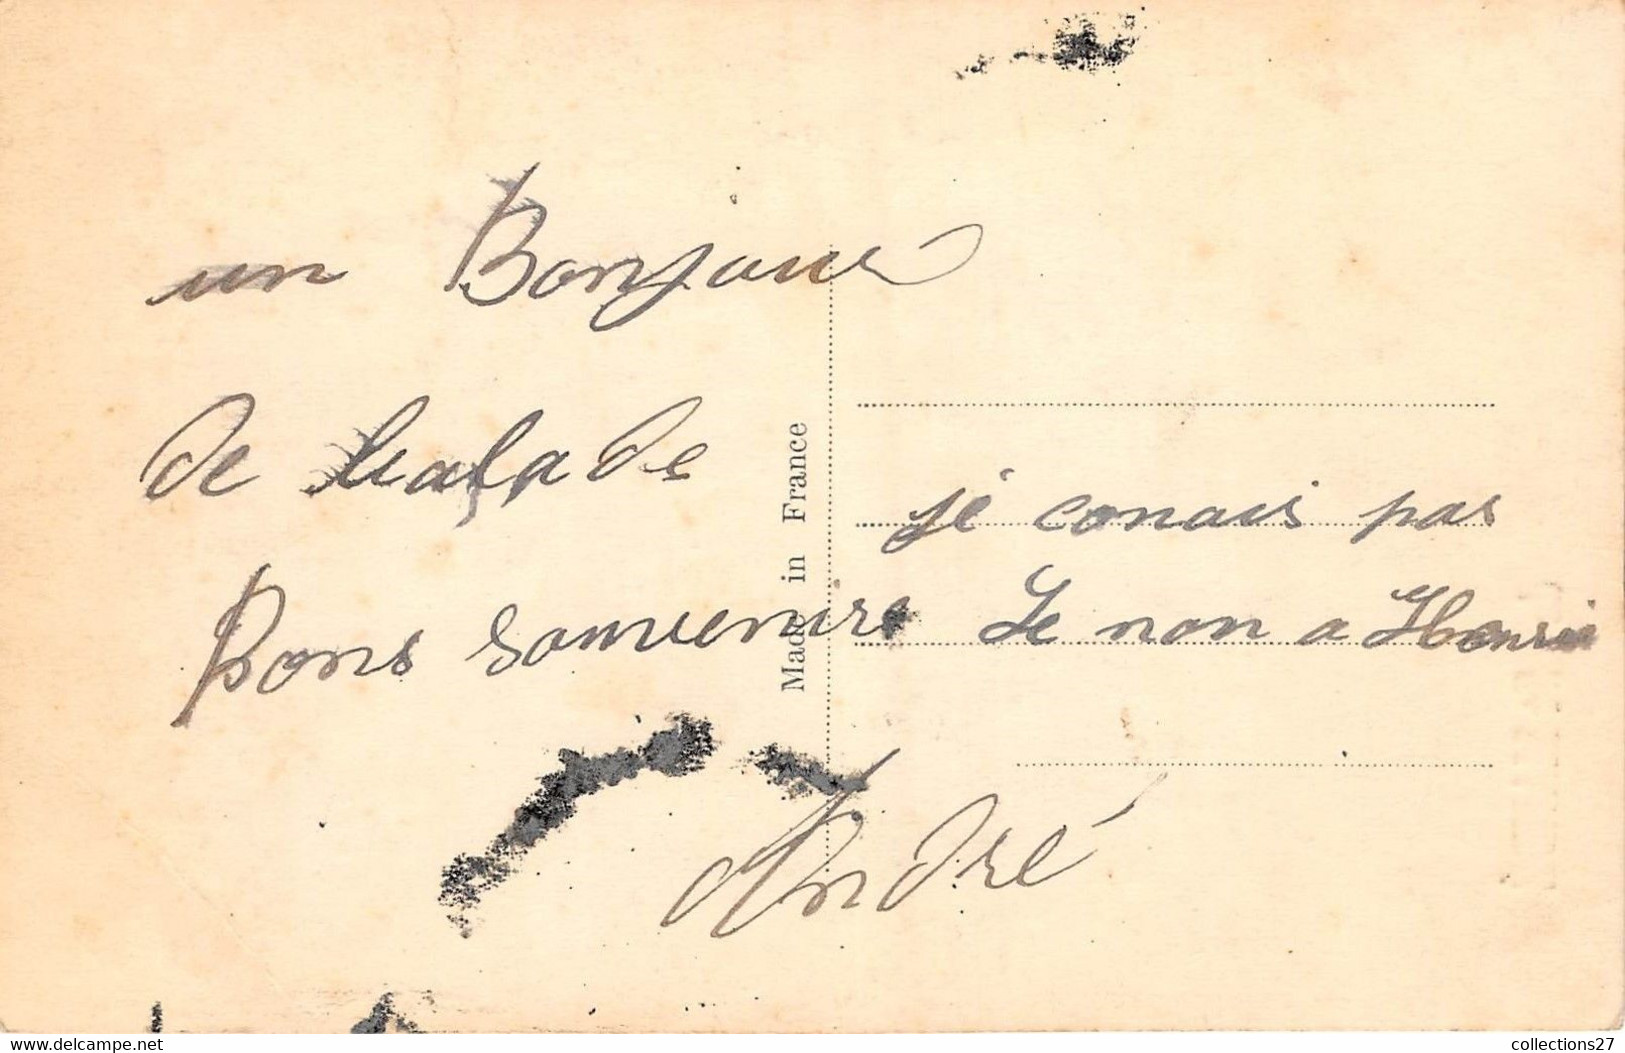 un Bonjour
de balade
Bons souvenirs
André
Made in France
je conais pas
Le non a Henri
collections27